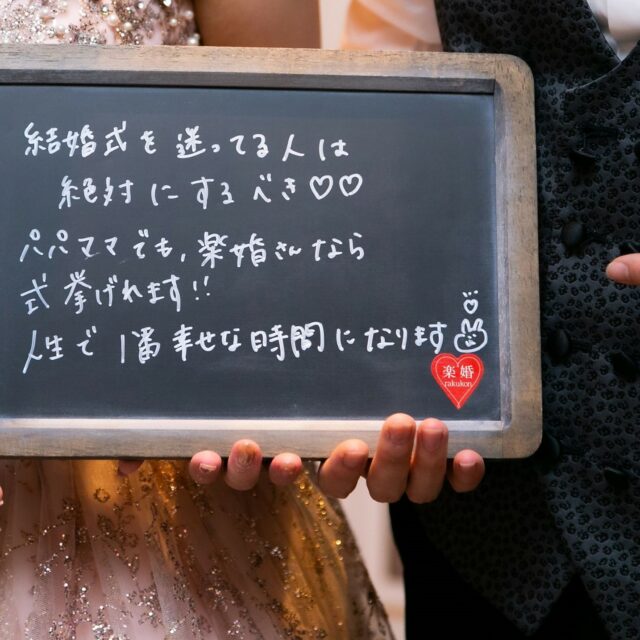 結婚式を迷ってる人は
絶対にするべき♡♡
パパママでも,楽婚さんなら
式挙げれます!!
人生で1番幸せな時間になります
楽婚
rakukon